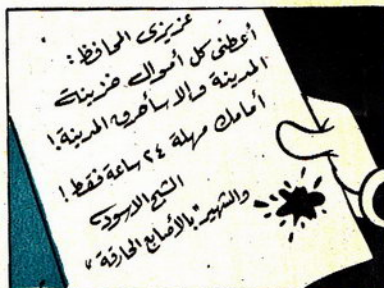 عزيزى المحافظ:
أعطنى كل أموال خزينة
المدينة وإلا سأحرق المدينة!
أمامك مهلة ٢٤ ساعة فقط!
الشبح الاسود
والشهير "بالأصابع الحارقة"